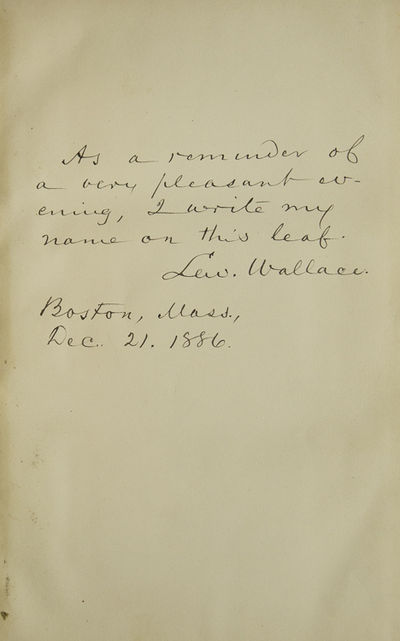 As a reminder of
a very pleasant ev-
ening, I write my
name on this leaf.
Lew. Wallace.
Boston, Mass.,
Dec. 21. 1886.